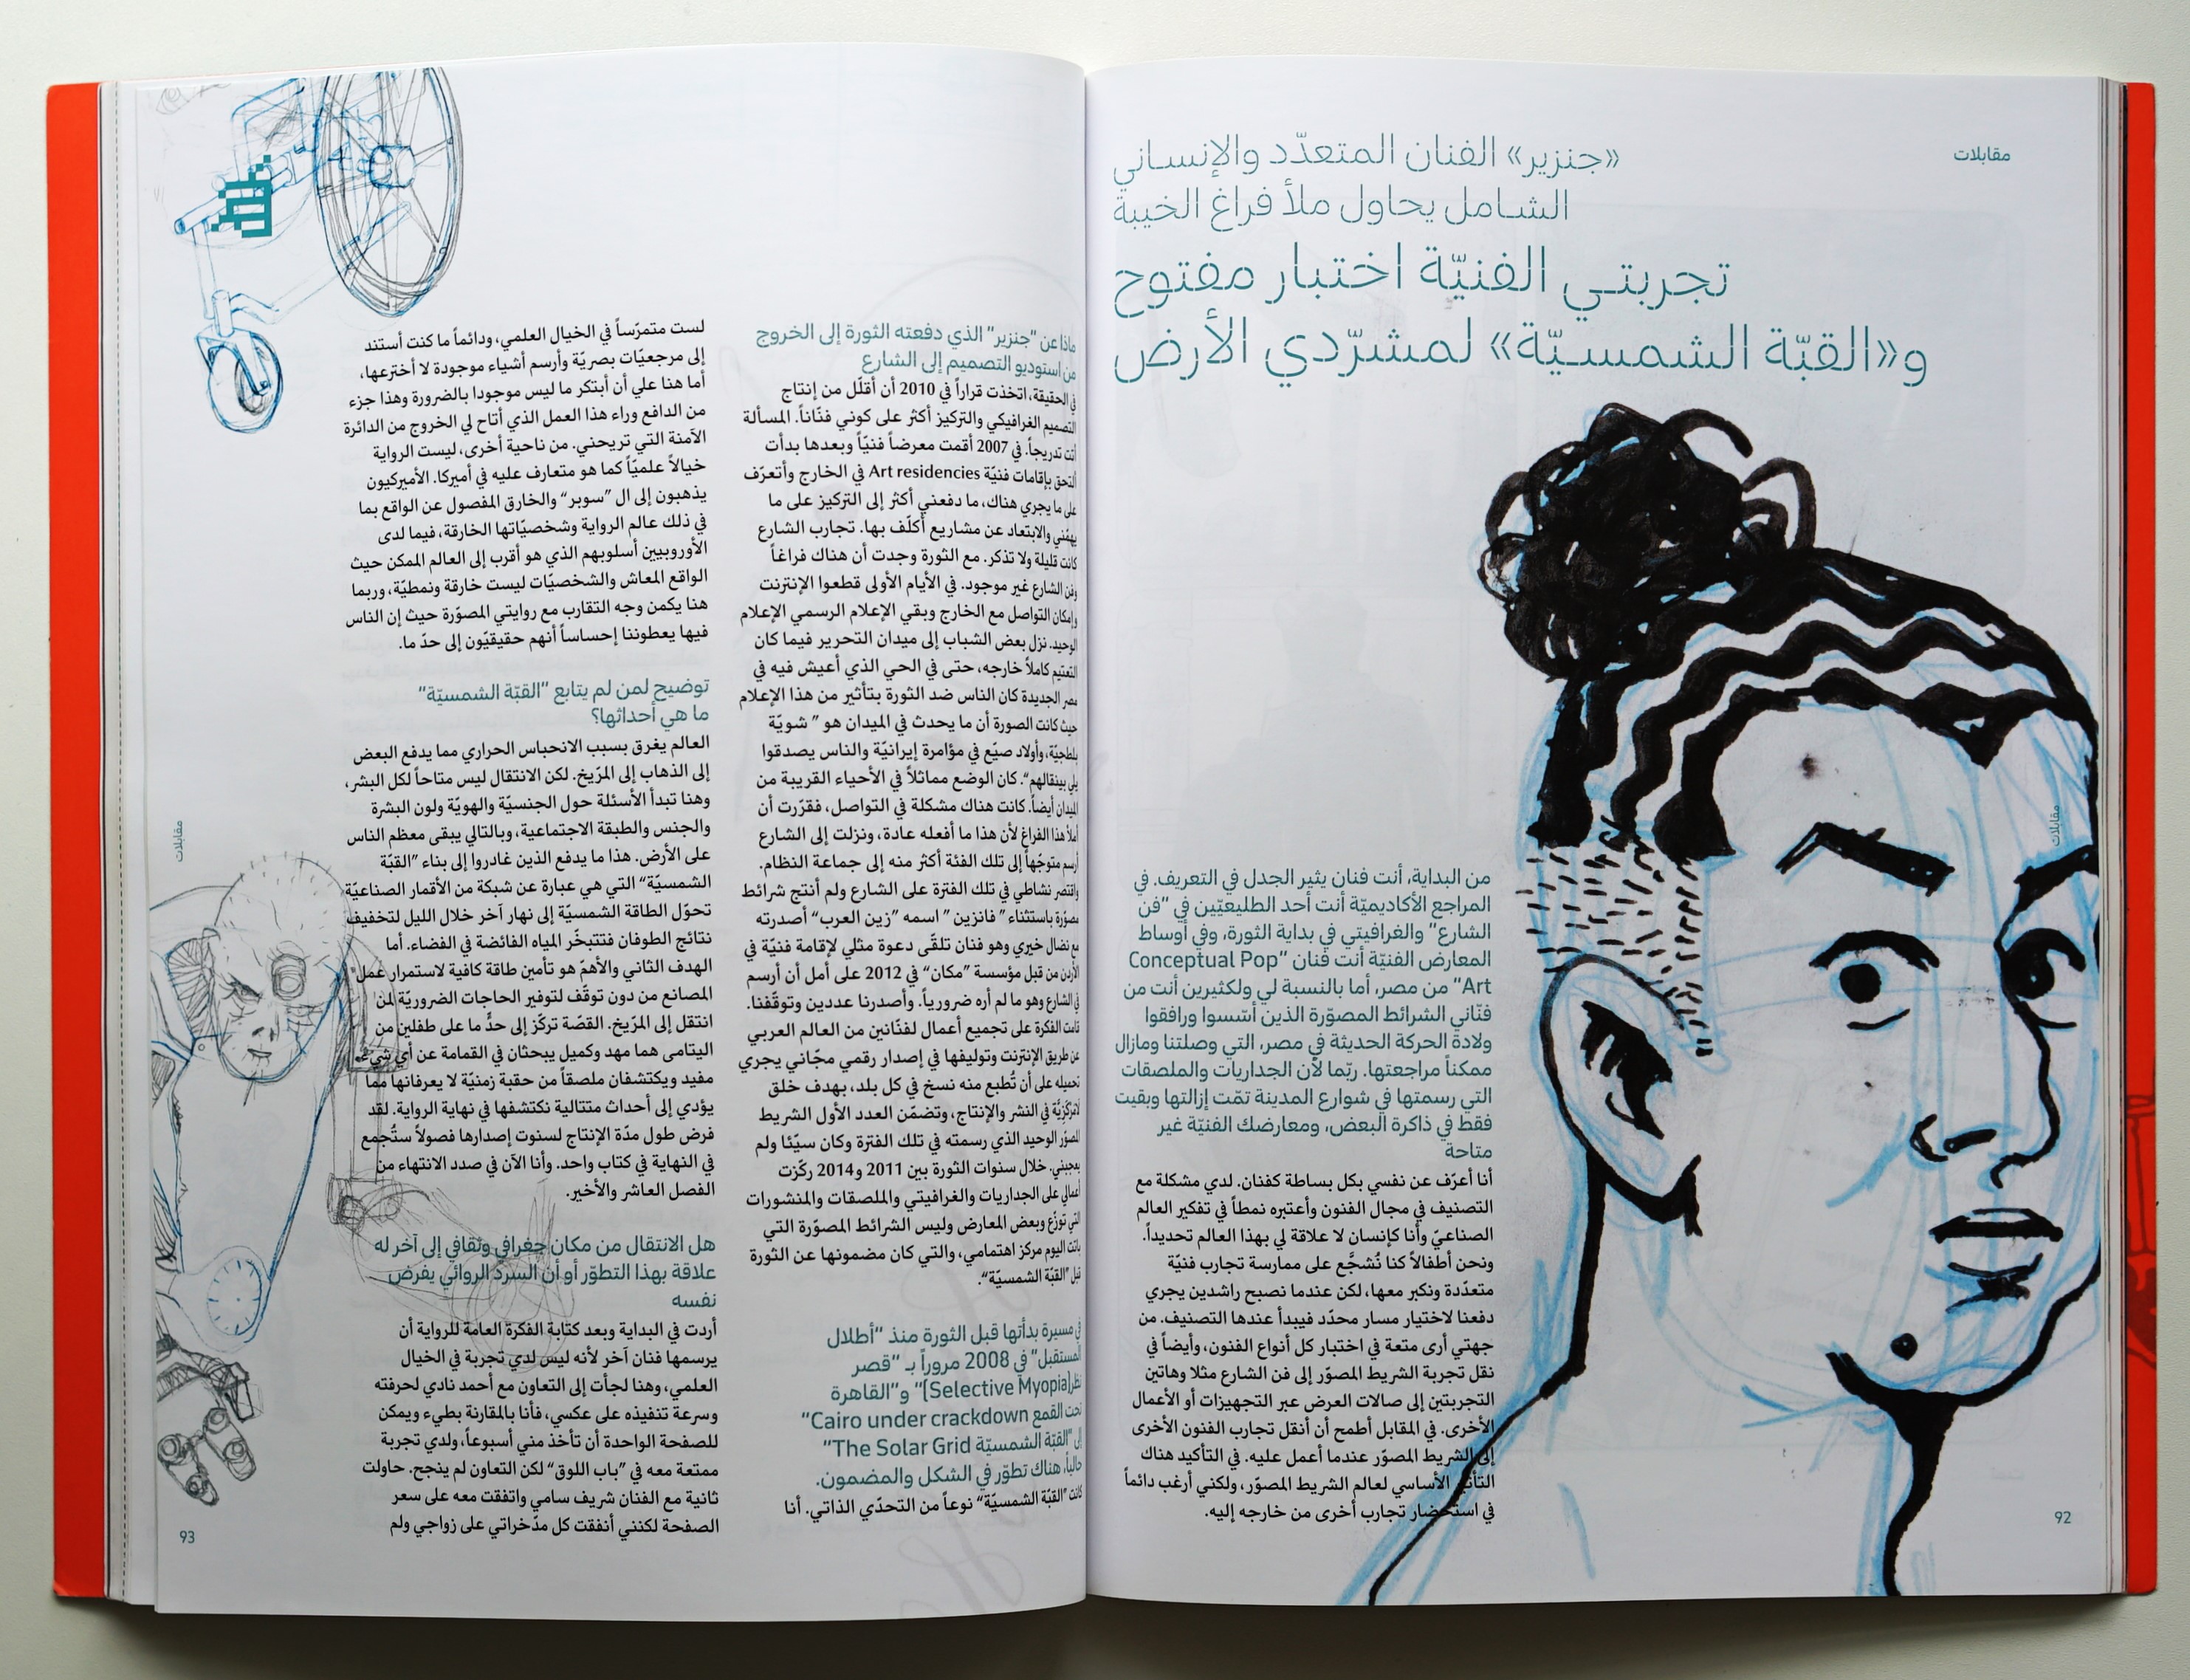 مقابلات
«جنزير» الفنان المتعدّد والإنساني
الشامل يحاول ملأ فراغ الخيبة
تجربتي الفنيّة اختبار مفتوح
و«القبّة الشمسيّة» لمشرّدي الأرض
من البداية، أنت فنان يثير الجدل في التعريف. في
المراجع الأكاديميّة أنت أحد الطليعيّين في "فن
الشارع" والغرافيتي في بداية الثورة، وفي أوساط
المعارض الفنيّة أنت فنان "Conceptual Pop
Art" من مصر، أما بالنسبة لي ولكثيرين أنت من
فنّاني الشرائط المصوّرة الذين أسّسوا ورافقوا
ولادة الحركة الحديثة في مصر، التي وصلتنا ومازال
ممكناً مراجعتها. ربّما لأن الجداريات والملصقات
التي رسمتها في شوارع المدينة تمّت إزالتها وبقيت
فقط في ذاكرة البعض، ومعارضك الفنيّة غير
متاحة
أنا أعرّف عن نفسي بكل بساطة كفنان. لدي مشكلة مع
التصنيف في مجال الفنون وأعتبره نمطاً في تفكير العالم
الصناعيّ وأنا كإنسان لا علاقة لي بهذا العالم تحديداً.
ونحن أطفالاً كنا نُشجَّع على ممارسة تجارب فنيّة
متعدّدة ونكبر معها، لكن عندما نصبح راشدين يجري
دفعنا لاختيار مسار محدّد فيبدأ عندها التصنيف. من
جهتي أرى متعة في اختبار كل أنواع الفنون، وأيضاً في
نقل تجربة الشريط المصوّر إلى فن الشارع مثلا وهاتين
التجربتين إلى صالات العرض عبر التجهيزات أو الأعمال
الأخرى. في المقابل أطمح أن أنقل تجارب الفنون الأخرى
إلى الشريط المصوّر عندما أعمل عليه. في التأكيد هناك
التأثير الأساسي لعالم الشريط المصوّر، ولكني أرغب دائماً
في استحضار تجارب أخرى من خارجه إليه.
مقابلات
92
ماذا عن "جنزير" الذي دفعته الثورة إلى الخروج
من استوديو التصميم إلى الشارع
في الحقيقة، اتخذت قراراً في 2010 أن أقلّل من إنتاج
التصميم الغرافيكي والتركيز أكثر على كوني فنّاناً. المسألة
أتت تدريجاً. في 2007 أقمت معرضاً فنيّاً وبعدها بدأت
ألتحق بإقامات فنيّة Art residencies في الخارج وأتعرّف
على ما يجري هناك، ما دفعني أكثر إلى التركيز على ما
يهمّني والابتعاد عن مشاريع أكلّف بها. تجارب الشارع
كانت قليلة ولا تذكر. مع الثورة وجدت أن هناك فراغاً
وفن الشارع غير موجود. في الأيام الأولى قطعوا الإنترنت
وإمكان التواصل مع الخارج وبقي الإعلام الرسمي الإعلام
الوحيد. نزل بعض الشباب إلى ميدان التحرير فيما كان
التعتيم كاملاً خارجه، حتى في الحي الذي أعيش فيه في
مصر الجديدة كان الناس ضد الثورة بتأثير من هذا الإعلام
حيث كانت الصورة أن ما يحدث في الميدان هو " شويّة
بلطجيّة، وأولاد صيّع في مؤامرة إيرانيّة والناس يصدقوا
يلي بينقالهم". كان الوضع مماثلاً في الأحياء القريبة من
الميدان أيضاً. كانت هناك مشكلة في التواصل، فقرّرت أن
أملأ هذا الفراغ لأن هذا ما أفعله عادة، ونزلت إلى الشارع
أرسم متوجّهاً إلى تلك الفئة أكثر منه إلى جماعة النظام.
واقتصر نشاطي في تلك الفترة على الشارع ولم أنتج شرائط
مصوّرة باستثناء " فانزين " اسمه "زين العرب" أصدرته
مع نضال خيري وهو فنان تلقّى دعوة مثلي لإقامة فنيّة في
الأردن من قبل مؤسسة "مكان" في 2012 على أمل أن أرسم
في الشارع وهو ما لم أره ضرورياً. وأصدرنا عددين وتوقّفنا.
قامت الفكرة على تجميع أعمال لفنّانين من العالم العربي
عن طريق الإنترنت وتوليفها في إصدار رقمي مجّاني يجري
تحميله على أن تُطبع منه نسخ في كل بلد، بهدف خلق
لامركزيّة في النشر والإنتاج، وتضمّن العدد الأول الشريط
المصوّر الوحيد الذي رسمته في تلك الفترة وكان سيّئا ولم
يعجبني. خلال سنوات الثورة بين 2011 و2014 ركّزت
أعمالي على الجداريات والغرافيتي والملصقات والمنشورات
التي توزّع وبعض المعارض وليس الشرائط المصوّرة التي
باتت اليوم مركز اهتمامي، والتي كان مضمونها عن الثورة
قبل "القبّة الشمسيّة".
في مسيرة بدأتها قبل الثورة منذ "أطلال
المستقبل" في 2008 مروراً بـ "قصر
نظر(Selective Myopia)" و"القاهرة
تحت القمع Cairo under crackdown"
إلى "القبّة الشمسيّة The Solar Grid"
حالياً، هناك تطوّر في الشكل والمضمون.
كانت "القبّة الشمسيّة" نوعاً من التحدّي الذاتي. أنا
لست متمرّساً في الخيال العلمي، ودائماً ما كنت أستند
إلى مرجعيّات بصريّة وأرسم أشياء موجودة لا أخترعها،
أما هنا علي أن أبتكر ما ليس موجودا بالضرورة وهذا جزء
من الدافع وراء هذا العمل الذي أتاح لي الخروج من الدائرة
الآمنة التي تريحني. من ناحية أخرى، ليست الرواية
خيالاً علميّاً كما هو متعارف عليه في أميركا. الأميركيون
يذهبون إلى ال "سوبر" والخارق المفصول عن الواقع بما
في ذلك عالم الرواية وشخصيّاتها الخارقة، فيما لدى
الأوروبيين أسلوبهم الذي هو أقرب إلى العالم الممكن حيث
الواقع المعاش والشخصيّات ليست خارقة ونمطيّة، وربما
هنا يكمن وجه التقارب مع روايتي المصوّرة حيث إن الناس
فيها يعطوننا إحساساً أنهم حقيقيّون إلى حدّ ما.
توضيح لمن لم يتابع "القبّة الشمسيّة"
ما هي أحداثها؟
العالم يغرق بسبب الانحباس الحراري مما يدفع البعض
إلى الذهاب إلى المرّيخ. لكن الانتقال ليس متاحاً لكل البشر،
وهنا تبدأ الأسئلة حول الجنسيّة والهويّة ولون البشرة
والجنس والطبقة الاجتماعية، وبالتالي يبقى معظم الناس
على الأرض. هذا ما يدفع الذين غادروا إلى بناء "القبّة
الشمسيّة" التي هي عبارة عن شبكة من الأقمار الصناعيّة
تحوّل الطاقة الشمسيّة إلى نهار آخر خلال الليل لتخفيف
نتائج الطوفان فتتبخّر المياه الفائضة في الفضاء. أما
الهدف الثاني والأهمّ هو تأمين طاقة كافية لاستمرار عمل
المصانع من دون توقّف لتوفير الحاجات الضروريّة لمن
انتقل إلى المرّيخ. القصّة تركّز إلى حدًّ ما على طفلين من
اليتامى هما مهد وكميل يبحثان في القمامة عن أي شيء
مفيد ويكتشفان ملصقاً من حقبة زمنيّة لا يعرفانها مما
يؤدي إلى أحداث متتالية نكتشفها في نهاية الرواية. لقد
فرض طول مدّة الإنتاج لسنوت إصدارها فصولاً ستُجمع
في النهاية في كتاب واحد. وأنا الآن في صدد الانتهاء من
الفصل العاشر والأخير.
هل الانتقال من مكان جغرافي وثقافي إلى آخر له
علاقة بهذا التطوّر أو أن السرد الروائي يفرض
نفسه
أردت في البداية وبعد كتابة الفكرة العامة للرواية أن
يرسمها فنان آخر لأنه ليس لدي تجربة في الخيال
العلمي، وهنا لجأت إلى التعاون مع أحمد نادي لحرفته
وسرعة تنفيذه على عكسي، فأنا بالمقارنة بطيء ويمكن
للصفحة الواحدة أن تأخذ مني أسبوعاً، ولدي تجربة
ممتعة معه في "باب اللوق" لكن التعاون لم ينجح. حاولت
ثانية مع الفنان شريف سامي واتفقت معه على سعر
الصفحة لكنني أنفقت كل مدّخراتي على زواجي ولم
مقابلات
93